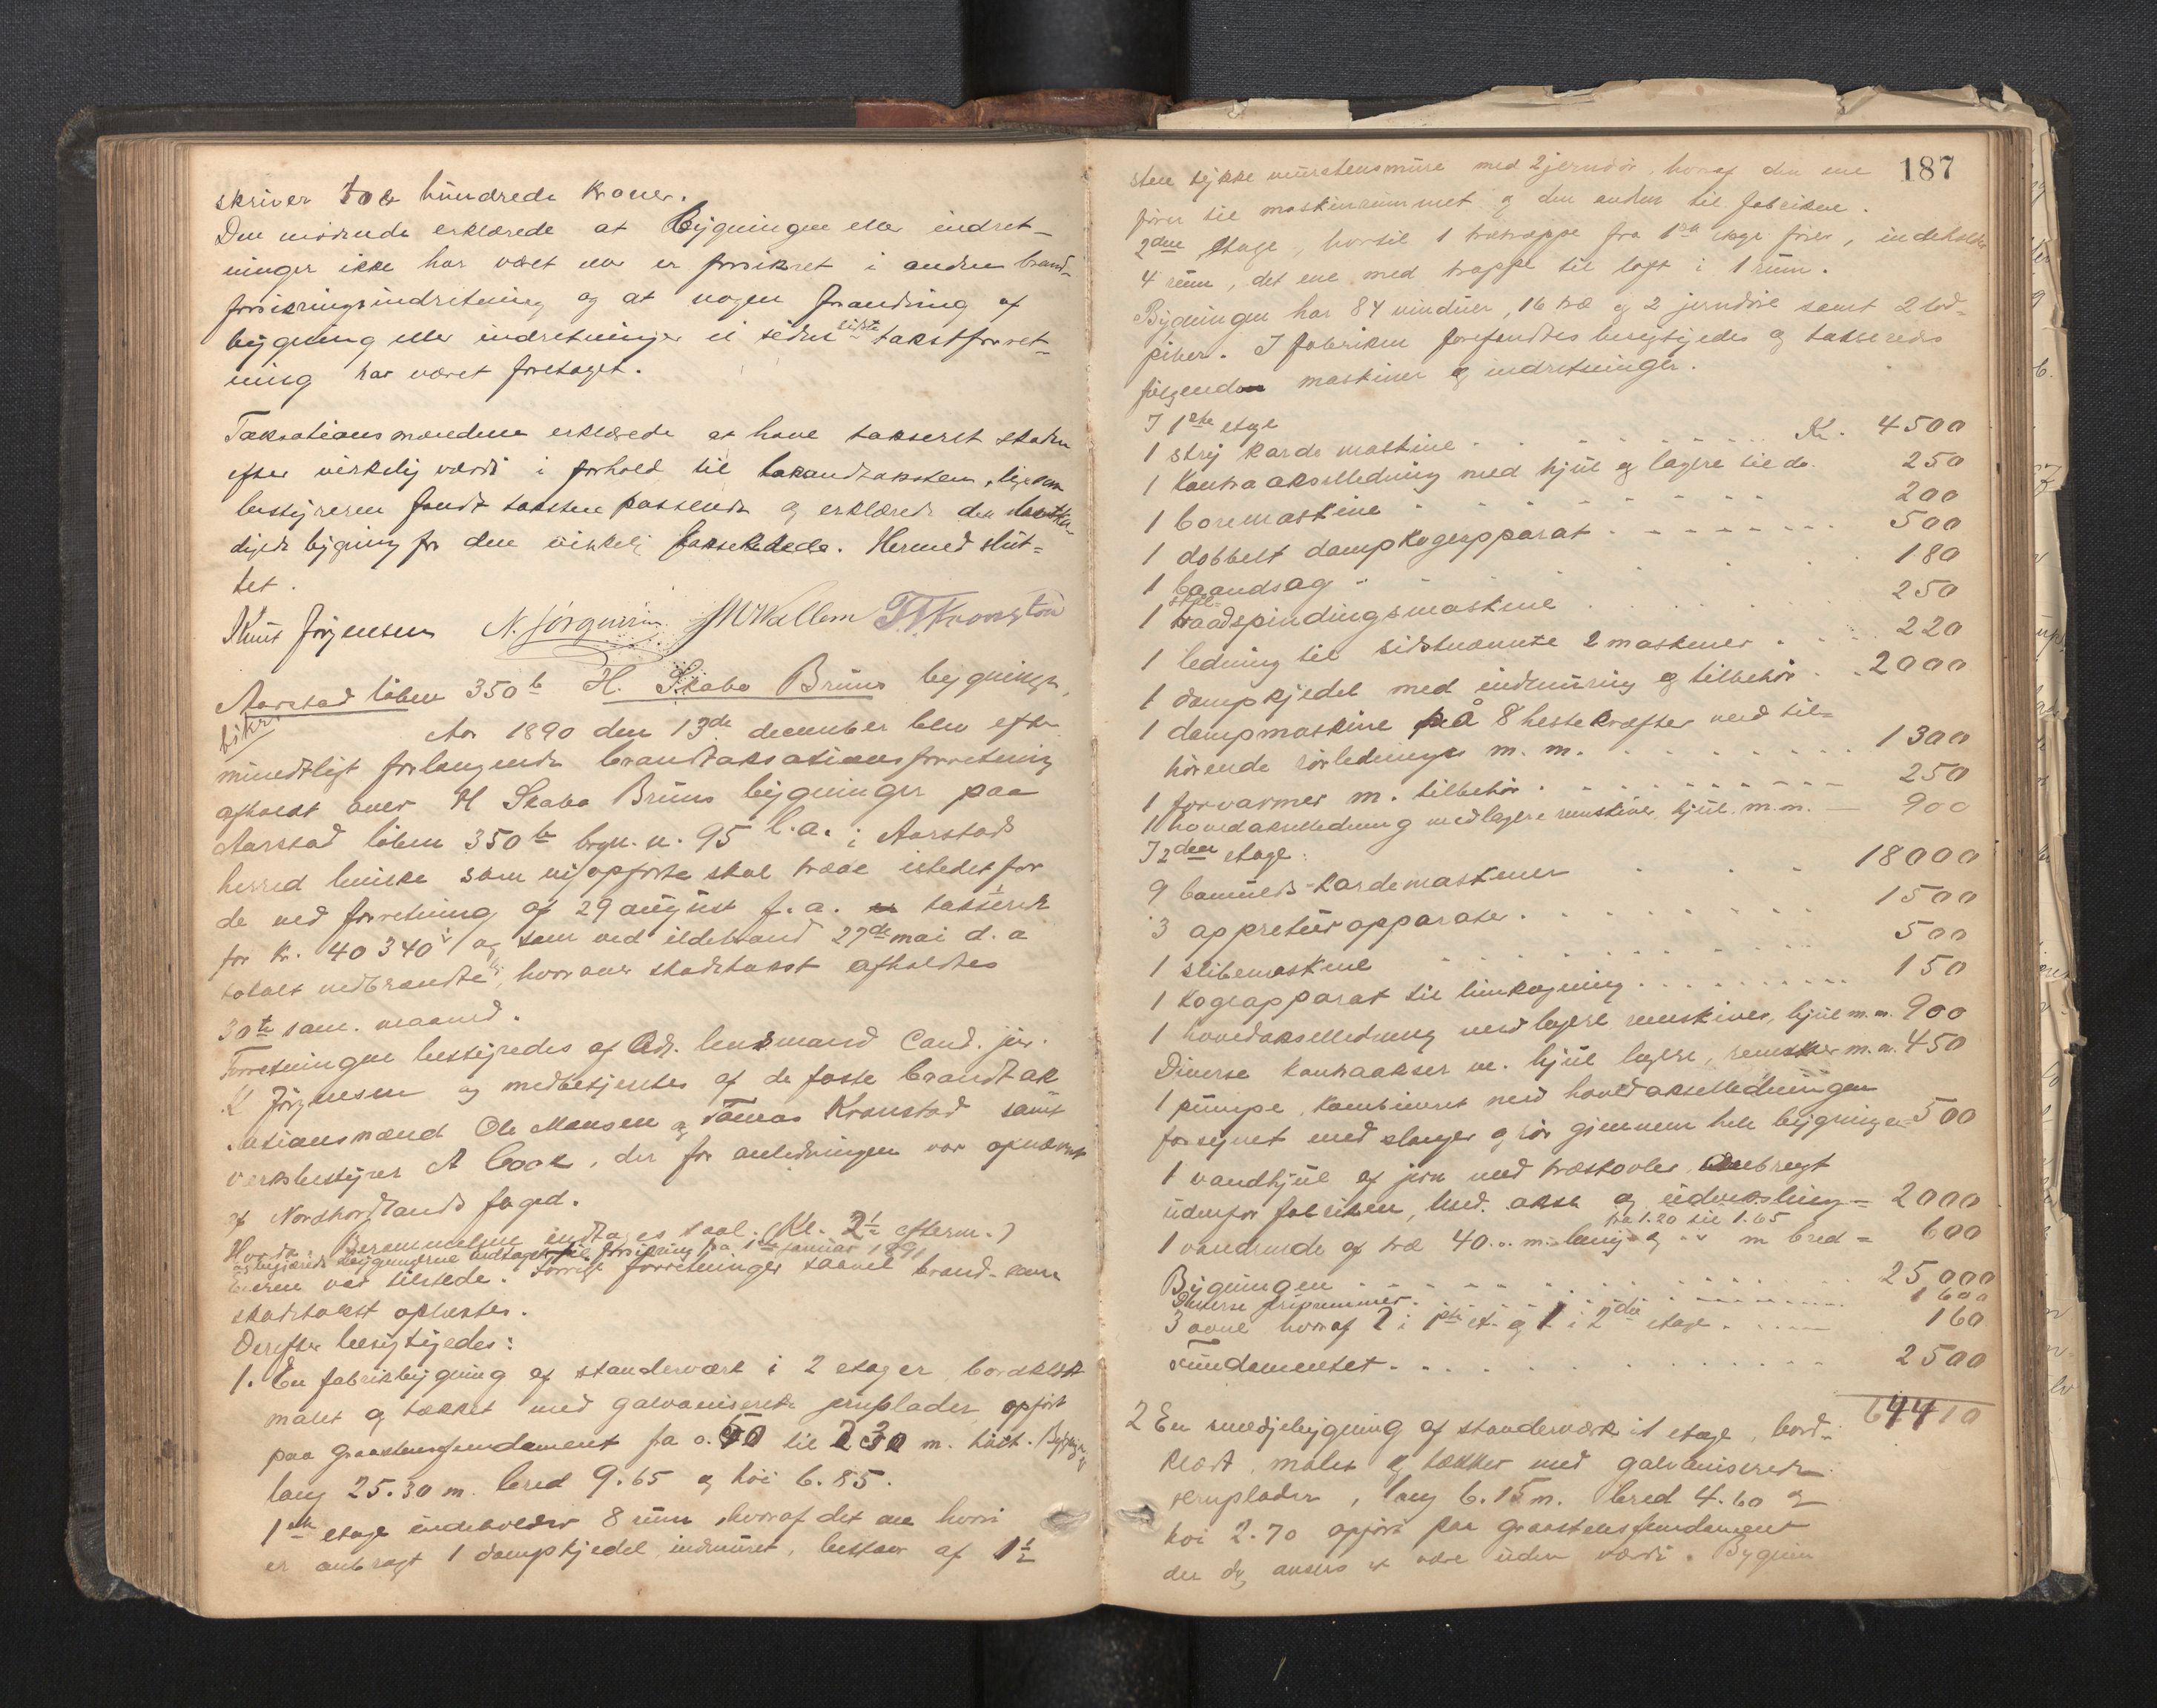 skriver to hundrede Kroner.
Den mødende erklærede at bygningen eller indret-
ninger ikke har været eller er forsikret i anden brand-
forsikringsindretning og at nogen forandring af
bygning eller indretninger ei siden sidste takstforret-
ning har været foretaget.
Taksationsmændene erklærede at have takseret skaden
efter virkelig værdi i forhold til brandtaksten, ligesom
bestyreren fandt taksten passende og erklærede den
digede bygning for den virkelig takserede. Hermed slut-
tet.
Knut Jørgensen N. Jørgensen M Wallem T. Kronstad
Aarstad løben 350 b H. Skabo Bruns bygninger,
Aar 1890 den 13de december blev efter
mundtligt forlangende brandtaksationsforretning
afholdt over H Skabo Bruns bygninger paa
Aarstad løben 350 b brgn. n. 95 l.a. i Aarstad
herred hvilke som nyopførte skal træde istedetfor
de ved forretning af 29 august f.a. takserede
for Kr. 40340 og som ved ildebrand 27de mai d. a
totalt nedbrændte, hvorover skadetakst afholdtes
30te sam. maaned.
Forretningen bestyredes af Adj. lensmand Cand. jur.
K Jørgensen og medbetjentes af de faste brandtak
sationsmænd Ole Monsen og Tomas Kronstad samt
verksbestyrer A Cook, der for anledningen var opnævnt
af Nordhordlands foged.
Berammelsen indtages saal. (Kl. 2½ efterm.)
og begjærede bygningerne indtaget til forsikring fra 1ste januar 1891
Eieren var tilstede. Forrige forretninger saavel brand- som
skadetakst oplæstes.
Derefter besigtigedes:
1. En fabrikbygning af standerværk i 2 etager, bordklædt
malet og tækket med galvaniserede jernplader, opført
paa graastensfundament fra 0.50 til 2.30 m. høit.
lang 25.30 m. bred 9.65 og høi 6.85.
1ste etage indeholder 8 rum, hvoraf det ene hvori
er anbragt 1 dampkjedel, indmuret, bestaar af 1½
187
sten tykke murstensmure med 2 jerndør, hvoraf den ene
fører til maskinrummet og den anden til fabriken.
2den Etage, hvortil 1 trætrappe fra 1ste etage fører, indeholder
4 rum, det ene med trappe til loft i 1 rum.
Bygningen har 84 vinduer, 16 træ og 2 jerndøre samt 2 lod-
piber. I fabriken forefandtes besigtigedes og takseredes
følgende maskiner og indretninger.
I 1ste etage
1 strig karde maskine . . . . . . Kr. 4500
1 kontraakselledning med hjul og lagere til do. 250
1 boremaskine . . . . . . 200
1 dobbelt dampkogeapparat . . . . . . 500
1 baandsag . . . . . . 180
1 traadspindingsmaskine . . . . . . 250
1 ledning til sidstnævnte 2 maskiner . . . 220
1 dampkjedel med indmuring og tilbehør . . 2000
1 dampmaskine på 8 hestekræfter med til-
hørende rørledninger m. m. . . . . . . 1300
1 forvarmer m. tilbehør . . . . . . 250
1 hovedakselledning med lagere remskiver, hjul, m.m. — 900
I 2den etage:
9 bomulds-kardemaskiner . . . 18000
3 appreturapparater . . . . . . 1500
1 slibemaskine . . . . . . 500
1 kogeapparat til limkogning . . . . . . 150
1 hovedakselledning med lagere remskiver, hjul m.m. 900
Diverse kontraakser m. hjul lagere, remskiver m.m. 450
1 pumpe, kombineret med hovedakselledningen
forsynet med slanger og rør gjennem hele bygningen 500
1 vandhjul af jern med træskovler, anbragt
udenfor fabriken, med aksel og udveksling = 2000
fra 1.20 til 1.65
1 vandrende af træ 40.. m. lang og m bred = 600
Bygningen . . . . . . 25,000
Diverse . . . . . . 1600
3 ovne hvoraf 2 i 1ste et. og 1 i 2den etage . . . 160
Fundamentet . . . . . . 2500
64410
2 En smedjebygning af standerværk i 1 etage, bord-
klædt, malet og tækket med galvaniserede
jernplader, lang 6.15 m. bred 4.60 og
høi 2.70 opført paa graastensfundament
der dog ansees at være uden værdi. Bygnin